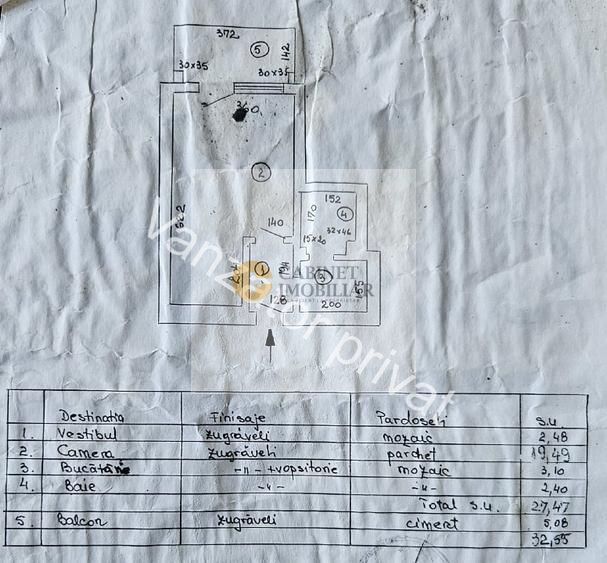 372
5
142
30×35
30×35
360
2
152
170
4
622
140
32×46
15×20
1
194
3
155
128
200
CABINET
IMOBILIAR
Vanzator privat
Destinatia Finisaje Pardoseli s.u.
1. Vestibul zugrăveli mozaic 2,48
2. Camera zugrăveli parchet 19,49
3. Bucătărie -„- +vopsitorie mozaic 3,10
4. Baie -„- -„- 2,40
Total s.u. 27,47
5. Balcon zugrăveli ciment 5,08
32,55